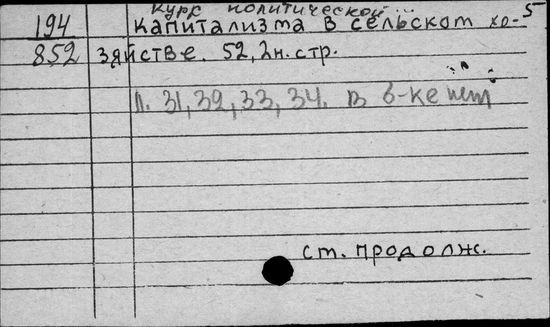 курс политической 5
194 капитализма в сельском хо-
852 зяйстве. 52, 2н. стр.
п. 31, 32, 33, 34. в б-ке нет
ст. продолж.